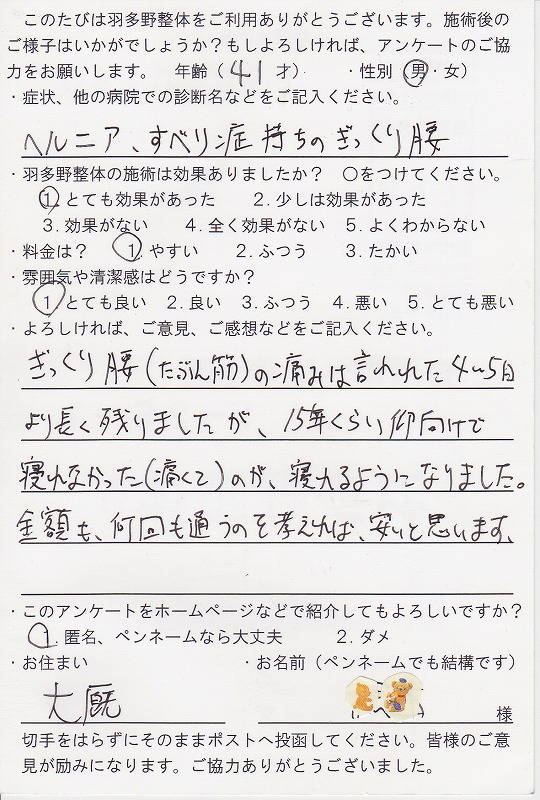 このたびは羽多野整体をご利用ありがとうございます。施術後の
ご様子はいかがでしょうか？もしよろしければ、アンケートのご協
力をお願いします。 年齢（41才） ・性別（男・女）
・症状、他の病院での診断名などをご記入ください。
ヘルニア、すべり症持ちのぎっくり腰
・羽多野整体の施術は効果ありましたか？ ○をつけてください。
1.とても効果があった 2.少しは効果があった
3.効果がない 4.全く効果がない 5.よくわからない
・料金は？ 1.やすい 2.ふつう 3.たかい
・雰囲気や清潔感はどうですか？
1.とても良い 2.良い 3.ふつう 4.悪い 5.とても悪い
・よろしければ、ご意見、ご感想などをご記入ください。
ぎっくり腰(たぶん筋)の痛みは言われた4〜5日
より長く残りましたが、15年くらい仰向けで
寝れなかった(痛くて)のが、寝れるようになりました。
金額も、何回も通うのを考えれば、安いと思います、
・このアンケートをホームページなどで紹介してもよろしいですか？
1.匿名、ペンネームなら大丈夫 2.ダメ
・お住まい ・お名前（ペンネームでも結構です）
大厩
様
切手をはらずにそのままポストへ投函してください。皆様のご意
見が励みになります。ご協力ありがとうございました。